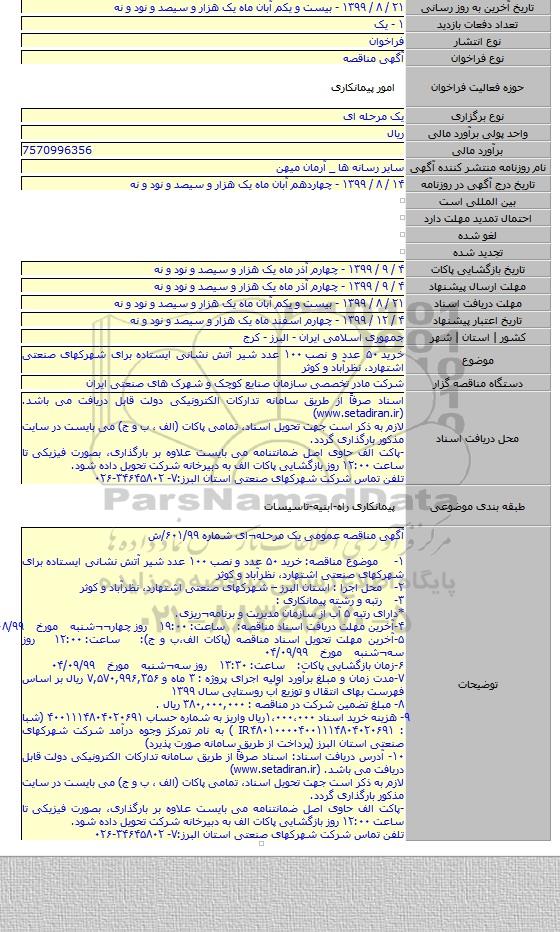 تاریخ آخرین به روز رسانی ۲۱ / ۸ / ۱۳۹۹ - بیست و یکم آبان ماه یک هزار و سیصد و نود و نه
تعداد دفعات بازدید ۱ - یک
نوع انتشار فراخوان
نوع فراخوان آگهی مناقصه
حوزه فعالیت فراخوان امور پیمانکاری
نوع برگزاری یک مرحله ای
واحد پولی برآورد مالی ریال
برآورد مالی 7570996356
نام روزنامه منتشر کننده آگهی سایر رسانه ها _ آرمان میهن
تاریخ درج آگهی در روزنامه ۱۴ / ۸ / ۱۳۹۹ - چهاردهم آبان ماه یک هزار و سیصد و نود و نه
بین المللی است
احتمال تمدید مهلت دارد
لغو شده
تجدید شده
تاریخ بازگشایی پاکات ۴ / ۹ / ۱۳۹۹ - چهارم آذر ماه یک هزار و سیصد و نود و نه
مهلت ارسال پیشنهاد ۴ / ۹ / ۱۳۹۹ - چهارم آذر ماه یک هزار و سیصد و نود و نه
مهلت دریافت اسناد ۲۱ / ۸ / ۱۳۹۹ - بیست و یکم آبان ماه یک هزار و سیصد و نود و نه
تاریخ اعتبار پیشنهاد ۴ / ۱۲ / ۱۳۹۹ - چهارم اسفند ماه یک هزار و سیصد و نود و نه
کشور | استان | شهر جمهوری اسلامی ایران - البرز - کرج
موضوع خرید ۵۰ عدد و نصب ۱۰۰ عدد شیر آتش نشانی ایستاده برای شهرکهای صنعتی
اشتهارد، نظرآباد و کوثر
دستگاه مناقصه گزار شرکت مادر تخصصی سازمان صنایع کوچک و شهرک های صنعتی ایران
محل دریافت اسناد
اسناد صرفاً از طریق سامانه تدارکات الکترونیکی دولت قابل دریافت می باشد.
(www.setadiran.ir)
لازم به ذکر است جهت تحویل اسناد، تمامی پاکات (الف ، ب و ج) می بایست در سایت
مذکور بارگذاری گردد.
-پاکت الف حاوی اصل ضمانتنامه می بایست علاوه بر بارگذاری، بصورت فیزیکی تا
ساعت ۱۲:۰۰ روز بازگشایی پاکات الف به دبیرخانه شرکت تحویل داده شود.
تلفن تماس شرکت شهرکهای صنعتی استان البرز:۷- ۰۲۶-۳۴۶۴۵۸۰۲
ParsNamadData
طبقه بندی موضوعی پیمانکاری راه-ابنیه-تاسیسات
توضیحات
آگهی مناقصه عمومی یک مرحله¬ای شماره ۶۰۱/۹۹/ش
۱- موضوع مناقصه: خرید ۵۰ عدد و نصب ۱۰۰ عدد شیر آتش نشانی ایستاده برای
شهرکهای صنعتی اشتهارد، نظرآباد و کوثر
۲- محل اجرا : استان البرز – شهرکهای صنعتی اشتهارد، نظرآباد و کوثر
۳- رتبه و رشته پیمانکاری :
*دارای رتبه ۵ آب از سازمان مدیریت و برنامه¬ریزی.
۴-آخرین مهلت دریافت اسناد مناقصه: ساعت: ۱۹:۰۰ روز چهار¬¬شنبه مورخ ۸/۹۹
۵-آخرین مهلت تحویل اسناد مناقصه (پاکات الف،ب و ج): ساعت: ۱۲:۰۰ روز
سه¬شنبه مورخ ۰۴/۰۹/۹۹
۶-زمان بازگشایی پاکات: ساعت: ۱۳:۳۰ روز سه¬شنبه مورخ ۰۴/۰۹/۹۹
۷-مدت زمان و مبلغ برآورد اولیه اجرای پروژه : ۳ ماه و ۷,۵۷۰,۹۹۶,۳۵۶ ریال بر اساس
فهرست بهای انتقال و توزیع آب روستایی سال ۱۳۹۹
۸- مبلغ تضمین شرکت در مناقصه : ۳۸۰,۰۰۰,۰۰۰ ریال .
۹- هزینه خرید اسناد ۱,۰۰۰,۰۰۰ریال واریز به شماره حساب ۴۰۰۱۱۱۴۸۰۴۰۲۰۶۹۱ (شبا
: IR۴۸۰۱۰۰۰۰۴۰۰۱۱۱۴۸۰۴۰۲۰۶۹۱ ) به نام تمرکز وجوه درآمد شرکت شهرکهای
صنعتی استان البرز (پرداخت از طریق سامانه صورت پذیرد)
۱۰- آدرس دریافت اسناد: اسناد صرفاً از طریق سامانه تدارکات الکترونیکی دولت قابل
دریافت می باشد. (www.setadiran.ir)
لازم به ذکر است جهت تحویل اسناد، تمامی پاکات (الف ، ب و ج) می بایست در سایت
مذکور بارگذاری گردد.
-پاکت الف حاوی اصل ضمانتنامه می بایست علاوه بر بارگذاری، بصورت فیزیکی تا
ساعت ۱۲:۰۰ روز بازگشایی پاکات الف به دبیرخانه شرکت تحویل داده شود.
تلفن تماس شرکت شهرکهای صنعتی استان البرز:۷- ۰۲۶-۳۴۶۴۵۸۰۲